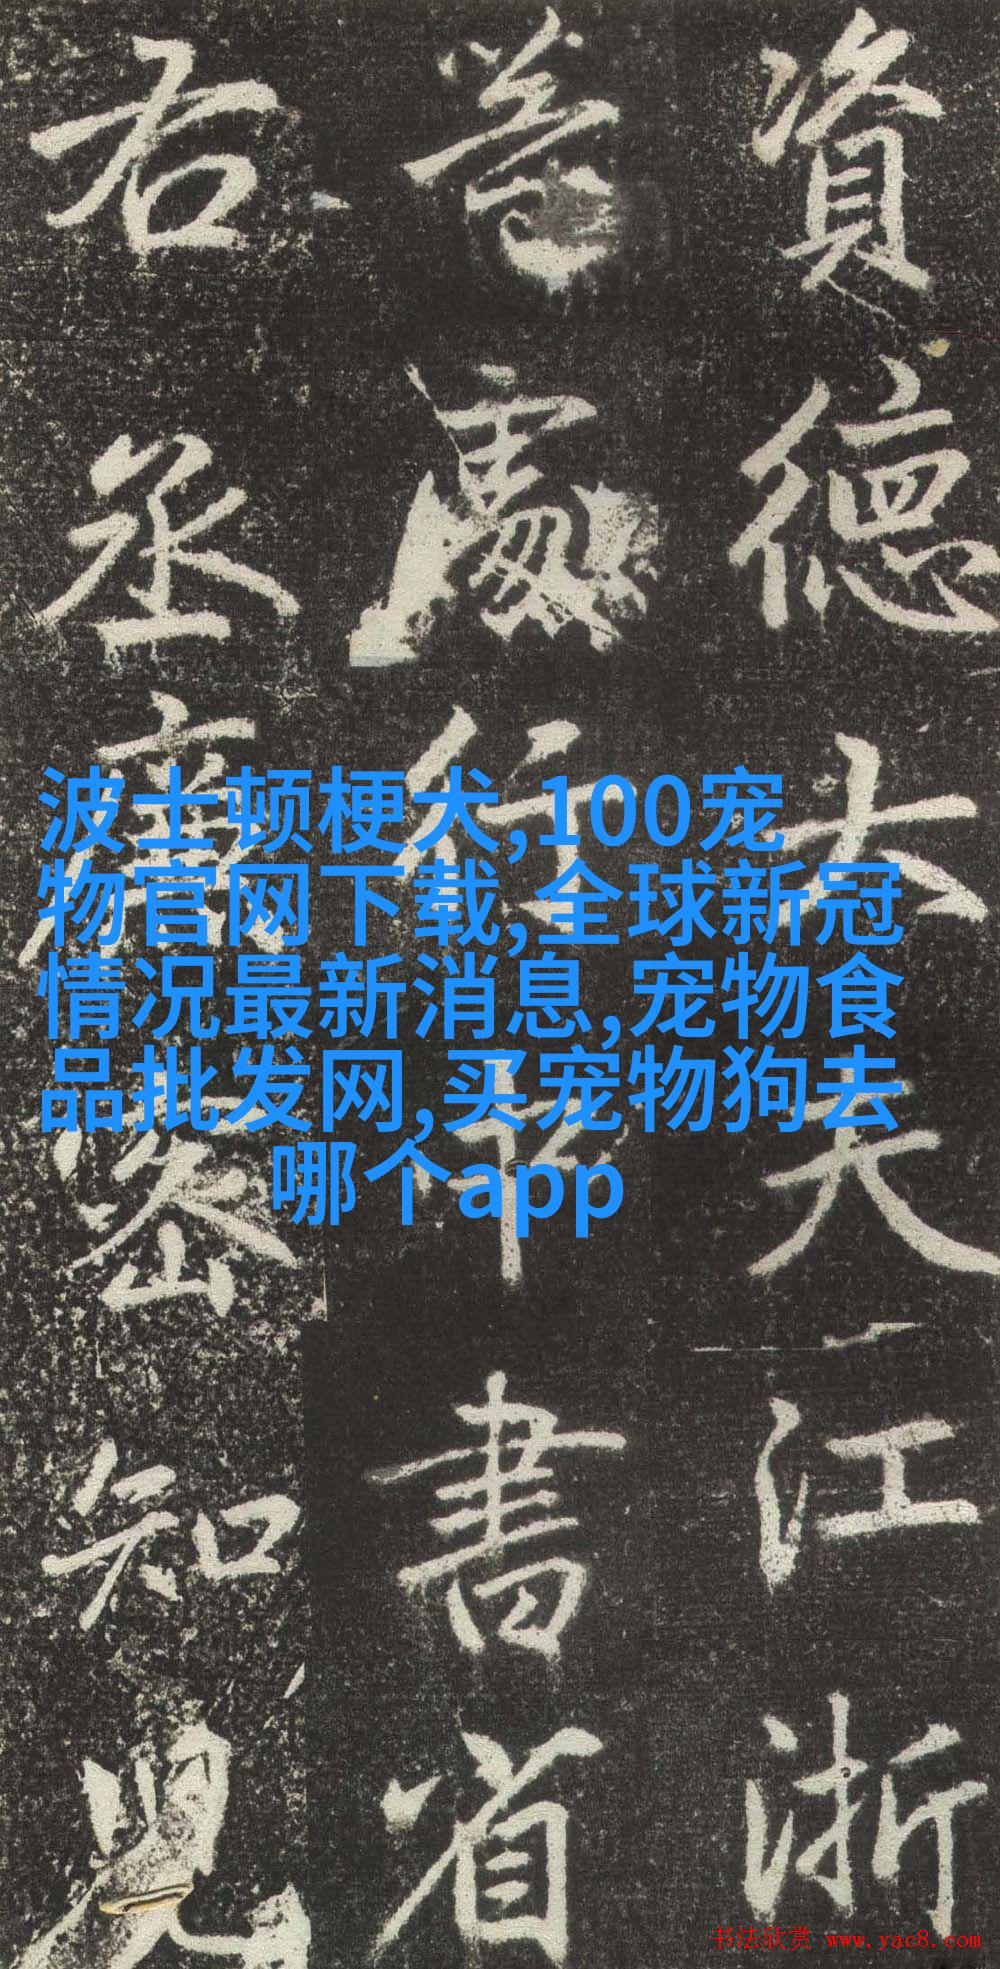 資德大夫江浙
等處行中書省
右丞廉密知兒
波士顿梗犬,100宠
物官网下载,全球新冠
情况最新消息,宠物食
品批发网,买宠物狗去
哪个app
书法欣赏 www.yac8.com